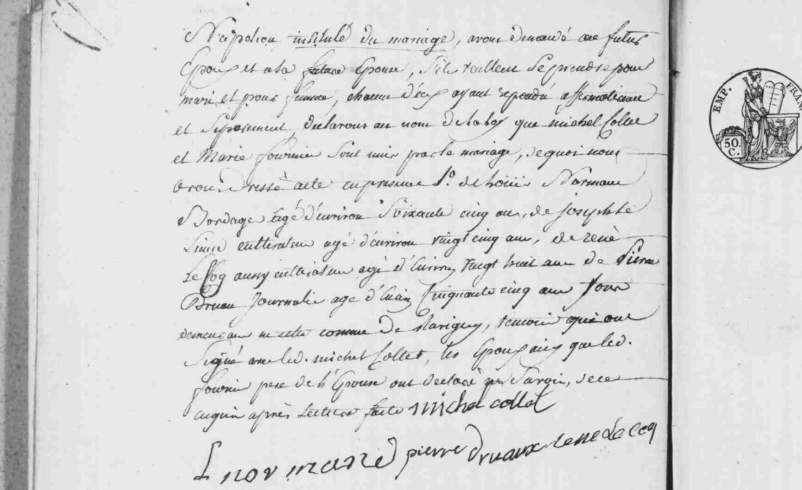 Napoleon intitulé du mariage, avons demandé au futur
Epoux et a la future Epouse, s'ils veullent se prendre pour
mari et pour femme, chacun d'eux ayant repondu affirmativement
et séparement, declarons au nom de la loy que michel Collet
et Marie fournier sont unis par le mariage, de quoi nous
avons dressé acte en presence 1o. de Normand
Bordage agé d'environ Soixante cinq ans, de joseph le
cultivateur agé d'environ vingt cinq ans, de renê
Le Coq aussy cultivateur agé d'environ vingt huit ans de Pierre
Druau Journalie agé d'environ Cinquante cinq ans Tous
demeurans en cette comune de temoins qui ont
Signé avec led. michel Collet, les Epoux ainsi que led.
fournie pere de l'Epouse ont declaré ne Savoir, de ce
enquis après Lecture faite michel collet
L normand pierre druaux rene Le coq
EMP. FRAN
50
C.